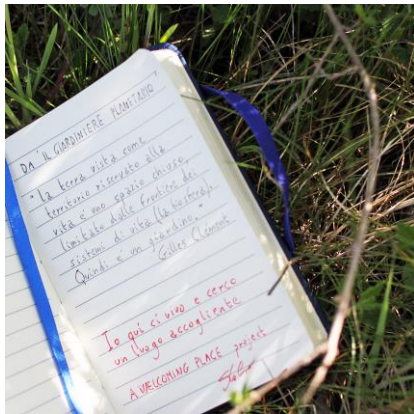 DA "IL GIARDINIERE PLANETARIO"
"La terra vista come
territorio riservato alla
vita è uno spazio chiuso,
limitato dalle frontiere dei
sistemi di vita (la biosfera).
Quindi è un giardino."
Gilles Clément
Io qui ci vivo e cerco
un luogo accogliente
A WELCOMING PLACE project